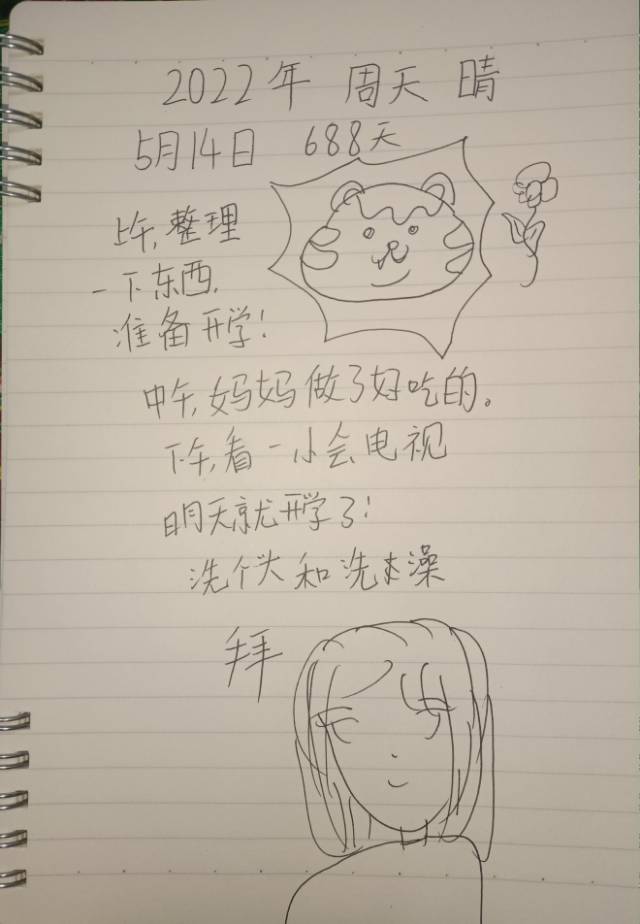 2022年 周天 晴
5月14日 688天
上午,整理
一下东西,
准备开学!
中午,妈妈做了好吃的。
下午,看一小会电视
明天就开学了!
洗个头和洗澡
拜